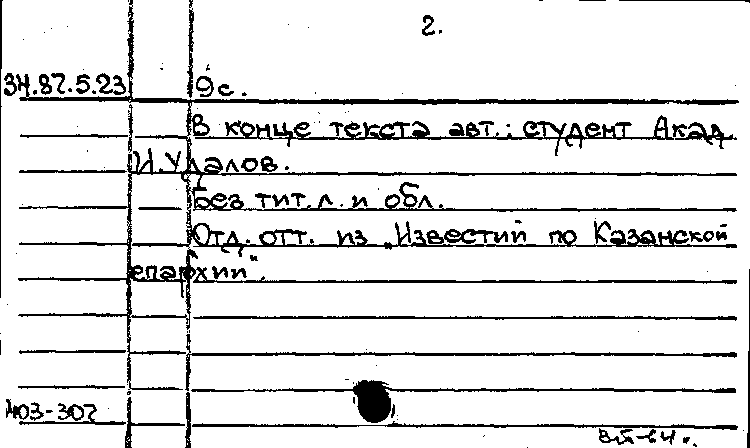 2.
34.87.5.23 9с.
В конце текста авт.: студент Акад.
И. Удалов.
Без тит. л. и обл.
Отд. отт. из „Известий по Казанской
епархии".
403-307